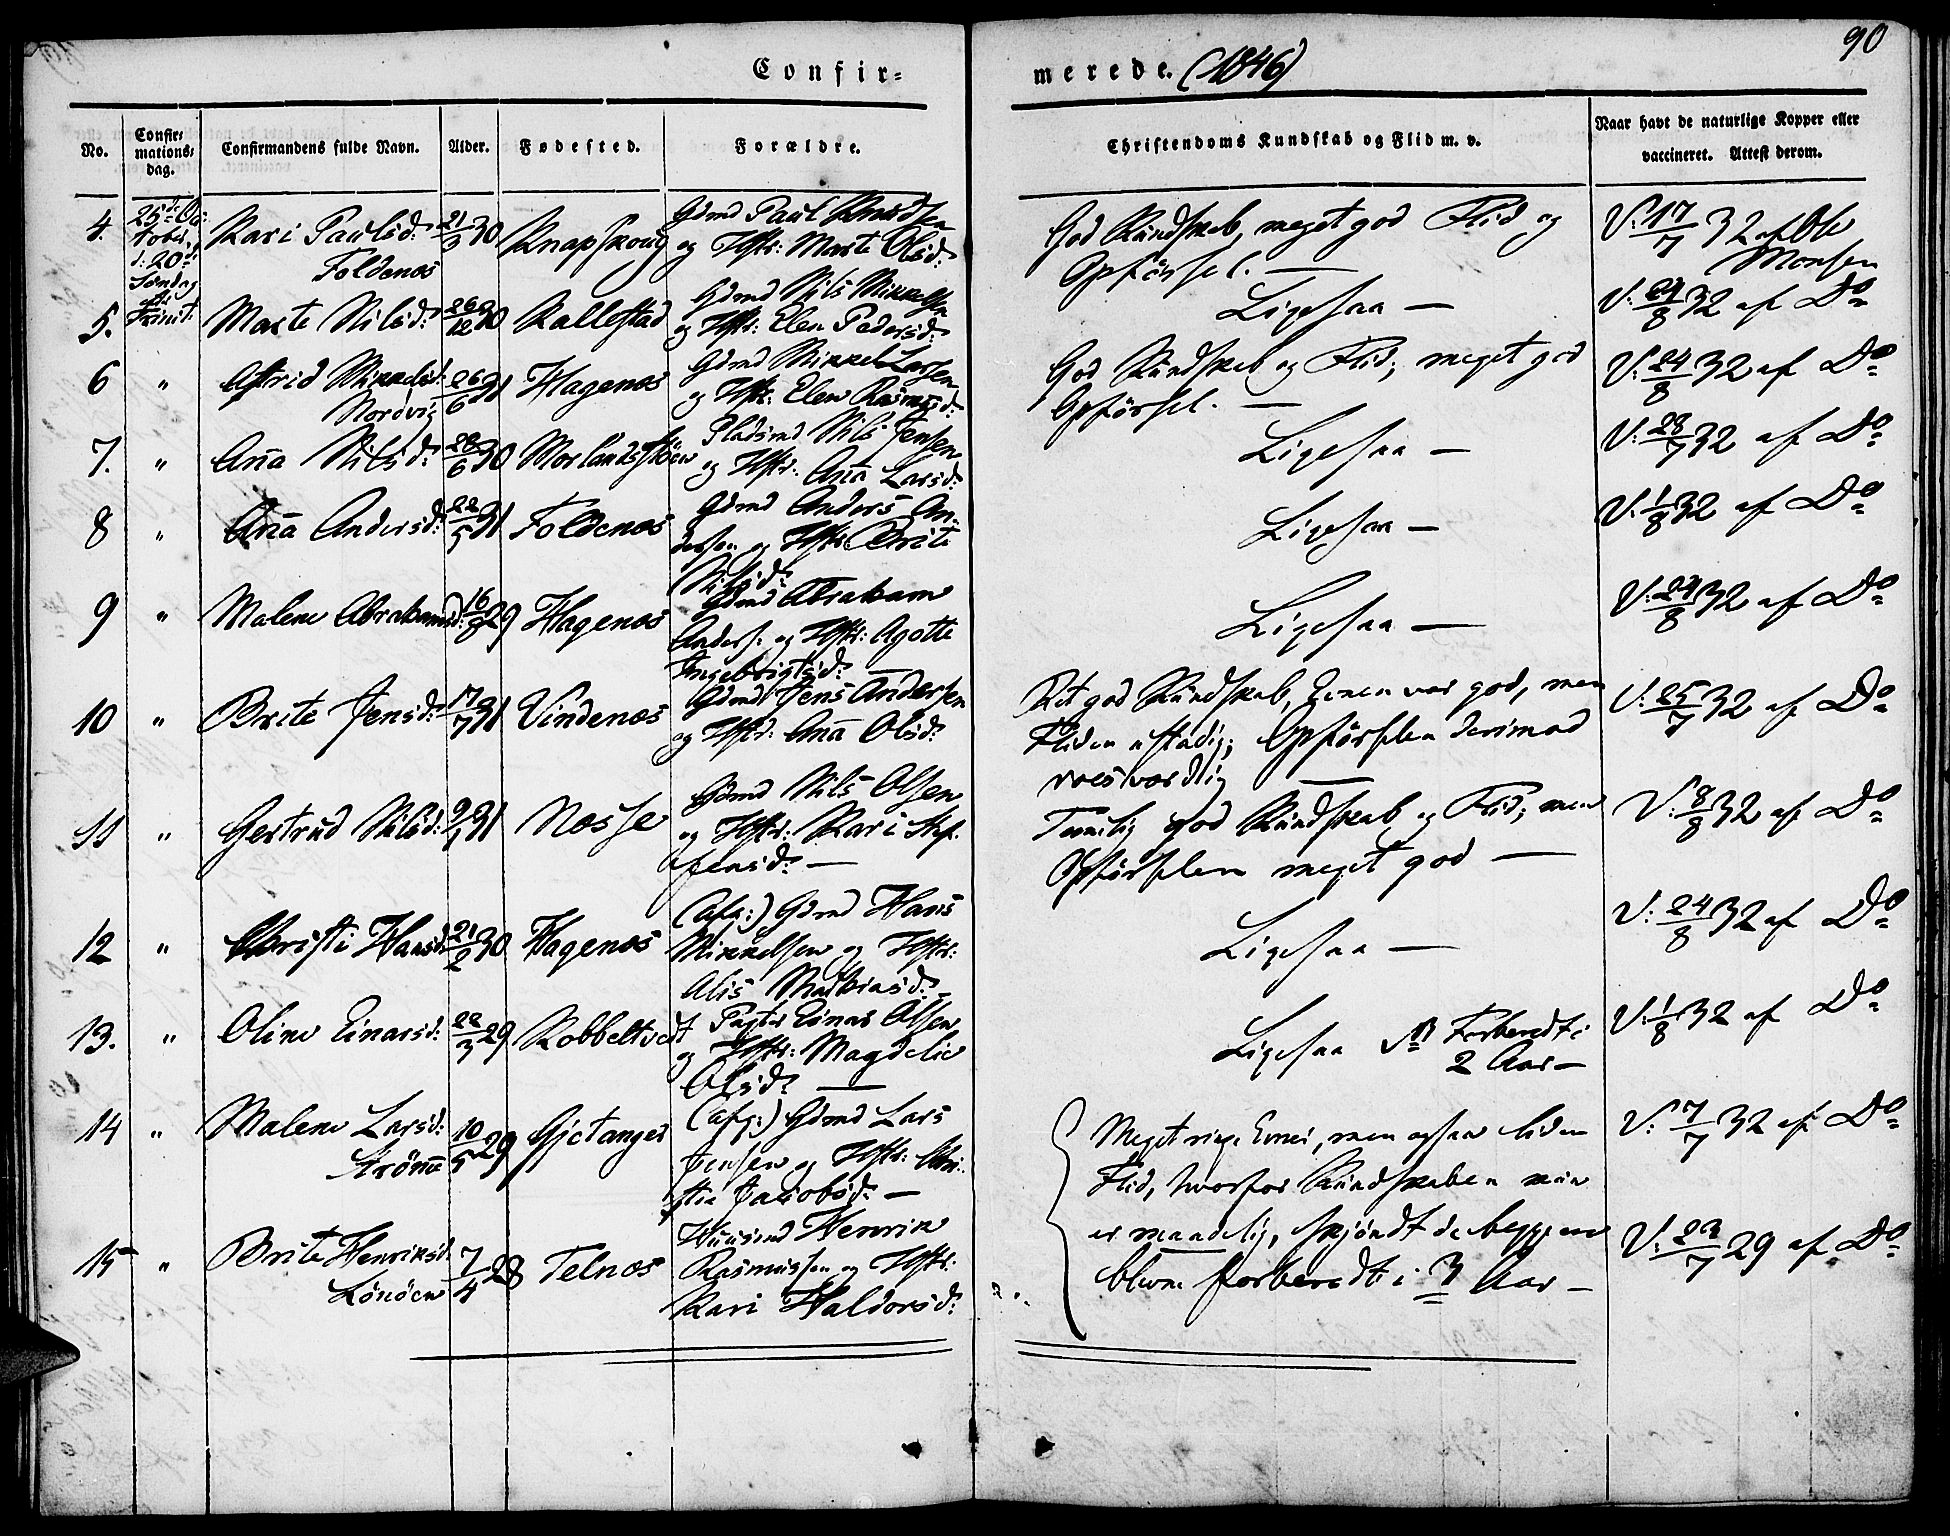 90
Confir-
merede. (1846)
No.
Confir-
mations-
dag.
Confirmandens fulde Navn.
Alder.
Fødested.
Forældre.
Christendoms Kundskab og Flid m. v.
Naar havt de naturlige Kopper eller
vaccineret. Attest derom.
4.
25de Oc-
tober
d: 20de
Søndag
Trinit:
Kari Paulsd:
Foldenæs
21/3 30
Knapskoug
Gdmd Paul Knudsen
og Hstr: Marte Olsd:
God Kundskab, meget god Flid og
Opførsel. —
V: 17/7 32 af Ole
Monsen
5.
Marte Nilsd:
26/12 30
Kallestad
Gdmd Nils Mikkelsen
og Hstr: Elen Pedersd:
Ligesaa —
V: 24/8 32 af Do
6
"
Astrid Mikkelsd:
Nordvig
26/6 31
Hagenæs
Gdmd Mikkel Larsen
og Hstr: Elen Rasmusd:
God Kundskab og Flid; meget god
Opførsel. —
V: 24/8 32 af Do
7.
"
Ana Nilsd:
28/6 30
Morlandsskjæn
Pladsmd Nils Jensen
og Hstr: Ana Larsd:
Ligesaa —
V: 28/7 32 af Do
8
"
Ana Andersd:
22/5 31
Foldenæs
Gdmd Anders An-
dersen og Hstr: Brite
Nilsd:
Ligesaa —
V: 1/8 32 af Do
9
"
Malene Abrahamsd:
16/8 29
Hagenæs
Gdmd Abraham
Anders: og Hstr: Agotte
Ingebrigtsd: —
Ligesaa —
V: 24/8 32 af Do
10
"
Brite Jensd:
17/7 31
Vindenæs
Gdmd Jens Andersen
og Hstr: Ana Olsd:
Ret god Kundskab, Evnen var god, men
Fliden ustadig; Opførslen derimod
roesværdig —
V: 25/7 32 af Do
11
"
Gertrud Nilsd:
9/1 31
Næsse
Gdmd Nils Olsen
og Hstr: Kari Stef-
fensd: —
Temmelig god Kundskab og Flid; men
Opførslen meget god —
V: 8/8 32 af Do
12
"
Christi Hansd:
21/2 30
Hagenæs
(afg:) Gdmd Hans
Mikkelsen og Hstr:
Alis Mathiasd: —
Ligesaa —
V: 24/8 32 af Do
13.
"
Oline Einarsd:
22/3 29
Kobbeltvedt
Pagter Einar Olsen
og Hstr: Magdeli
Olsd: —
Ligesaa NB Forberedt i
2 Aar —
V: 1/8 32 af Do
14
"
Malene Larsd:
Strømø
10/5 29
Gjetanger
(afg:) Gdmd Lars
Jensen og Hstr: Chri-
stie Jacobsd: —
Meget ringe Evner, men ogsaa liden
Flid, hvorfor Kundskaben kun
er maadelig, skjøndt de begge ere
blevne forberedt i 3 Aar —
V: 7/7 32 af Do
15
"
Brite Henriksd:
Lønøen
7/4 28
Telnæs
Huusmd Henrik
Rasmussen og Hstr:
Kari Haldorsd:
V: 23/7 29 af Do